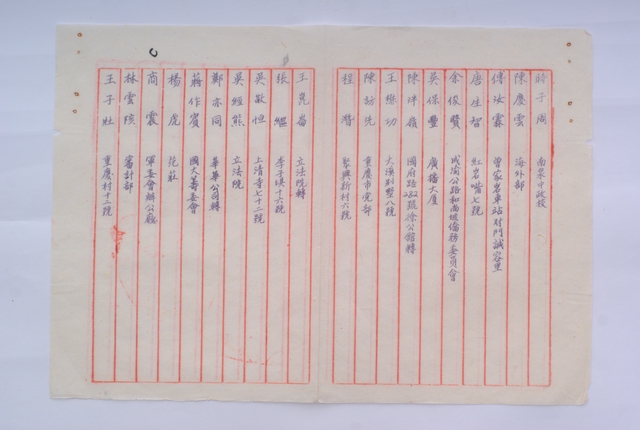 時子周 南泉中政校
陳慶雲 海外部
傅汝霖 曾家岩車站對門誠容里
唐生智 紅岩嘴七號
余俊賢 成渝公路和尚坡僑務委員會
吳保豐 廣播大厦
陳坪嶺 國府路 號徐公館轉
王懋功 大溪別墅八號
陳訪先 重慶市党部
程潛 聚興新村六號
王崑崙 立法院轉
張繼 李子垻十六號
吳敬恒 上清寺七十二號
吳經熊 立法院
鄭亦同 華華公司轉
蔣作賓 國大籌委會
楊虎 范莊
商震 軍委會辦公廳
林雲陔 審計部
王子壯 重慶村十三號